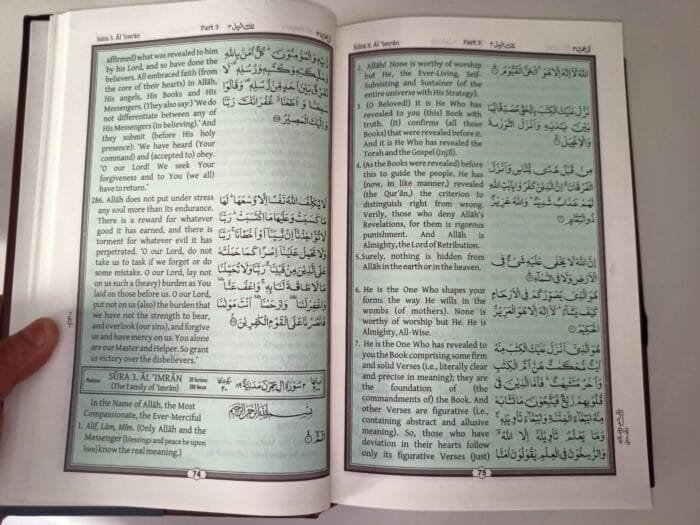 Sūra 3. Āl 'Imrān
Part 3
تلك الرسل ٣
affirmed) what was revealed to him
by his Lord, and so have done the
believers. All embraced faith (from
the core of their hearts) in Allāh,
His angels, His Books and His
Messengers. (They also say:) 'We do
not differentiate between any of
His Messengers (in believing).' And
they submit (before His holy
presence): 'We have heard (Your
command) and (accepted to) obey.
'O our Lord! We seek Your
forgiveness and to You (we all)
have to return.'
286. Allāh does not put under stress
any soul more than its endurance.
There is a reward for whatever
good it has earned, and there is
torment for whatever evil it has
perpetrated. 'O our Lord, do not
take us to task if we forget or do
some mistake. O our Lord, lay not
on us such a (heavy) burden as You
laid on those before us. O our Lord,
put not on us (also) the burden that
we have not the strength to bear,
and overlook (our sins), and forgive
us and have mercy on us. You alone
are our Master and Helper. So grant
us victory over the disbelievers.'
رَّبِّهٖ وَالْمُؤْمِنُوْنَ ؕ كُلٌّ اٰمَنَ بِاللّٰهِ
وَمَلٰٓئِكَتِهٖ وَكُتُبِهٖ وَرُسُلِهٖ ۟ لَا
نُفَرِّقُ بَيْنَ اَحَدٍ مِّنْ رُّسُلِهٖ ۟ وَقَالُوْا
سَمِعْنَا وَاَطَعْنَا ٭۫ غُفْرَانَكَ رَبَّنَا
وَاِلَيْكَ الْمَصِيْرُ
لَا يُكَلِّفُ اللّٰهُ نَفْسًا اِلَّا وُسْعَهَا ؕ لَهَا
مَا كَسَبَتْ وَعَلَيْهَا مَا اكْتَسَبَتْ ؕ رَبَّنَا
لَا تُؤَاخِذْنَاۤ اِنْ نَّسِيْنَاۤ اَوْ اَخْطَاْنَا ۚ رَبَّنَا
وَلَا تَحْمِلْ عَلَيْنَاۤ اِصْرًا كَمَا حَمَلْتَهٗ
عَلَى الَّذِيْنَ مِنْ قَبْلِنَا ۚ رَبَّنَا وَلَا تُحَمِّلْنَا
مَا لَا طَاقَةَ لَنَا بِهٖ ۚ وَاعْفُ عَنَّا
وَاغْفِرْ لَنَا وَارْحَمْنَا اَنْتَ مَوْلٰىنَا
فَانْصُرْنَا عَلَى الْقَوْمِ الْكٰفِرِيْنَ
Madinan
SŪRA 3. ĀL 'IMRĀN
(The Family of 'Imrān)
20 Sections
200 Verses
In the Name of Allāh, the Most
Compassionate, the Ever-Merciful
1. Alif, Lām, Mīm. (Only Allāh and the
Messenger [blessings and peace be upon
him] know the real meaning.)
بِسْمِ اللّٰهِ الرَّحْمٰنِ الرَّحِيْمِ
الٓمّٓ
74
Sūra 3. Āl 'Imrān
Part 3
تلك الرسل ٣
2. Allāh! None is worthy of worship
but He, the Ever-Living, Self-
Subsisting and Sustainer (of the
entire universe with His Strategy).
3. (O Beloved!) It is He Who has
revealed to you (this) Book with
truth. (It) confirms (all those
Books) that were revealed before it.
And it is He Who has revealed the
Torah and the Gospel (Injīl).
4. (As the Books were revealed) before
this to guide the people, He has
(now, in like manner,) revealed
(the Qur'ān,) the criterion to
distinguish right from wrong.
Verily, those who deny Allāh's
Revelations, for them is rigorous
punishment. And Allāh is
Almighty, the Lord of Retribution.
5.Surely, nothing is hidden from
Allāh in the earth or in the heaven.
6. He is the One Who shapes your
forms the way He wills in the
wombs (of mothers). None is
worthy of worship but He. He is
Almighty, All-Wise.
7. He is the One Who has revealed to
you the Book comprising some firm
and solid Verses (i.e., literally clear
and precise in meaning); they are
the foundation of (the
commandments of) the Book. And
other Verses are figurative (i.e.,
containing abstract and allusive
meaning). So, those who have
deviation in their hearts follow
only its figurative Verses (just)
اللّٰهُ لَاۤ اِلٰهَ اِلَّا هُوَ ۙ الْحَيُّ الْقَيُّوْمُ
نَزَّلَ عَلَيْكَ الْكِتٰبَ بِالْحَقِّ مُصَدِّقًا لِّمَا
بَيْنَ يَدَيْهِ وَاَنْزَلَ التَّوْرٰىةَ
وَالْاِنْجِيْلَ
مِنْ قَبْلُ هُدًى لِّلنَّاسِ وَاَنْزَلَ
الْفُرْقَانَ ؕ اِنَّ الَّذِيْنَ كَفَرُوْا بِاٰيٰتِ اللّٰهِ
لَهُمْ عَذَابٌ شَدِيْدٌ ؕ وَاللّٰهُ عَزِيْزٌ
ذُو انْتِقَامٍ
اِنَّ اللّٰهَ لَا يَخْفٰى عَلَيْهِ شَيْءٌ فِى
الْاَرْضِ وَلَا فِى السَّمَآءِ
هُوَ الَّذِيْ يُصَوِّرُكُمْ فِى الْاَرْحَامِ
كَيْفَ يَشَآءُ ؕ لَاۤ اِلٰهَ اِلَّا هُوَ الْعَزِيْزُ
الْحَكِيْمُ
هُوَ الَّذِيْۤ اَنْزَلَ عَلَيْكَ الْكِتٰبَ مِنْهُ
اٰيٰتٌ مُّحْكَمٰتٌ هُنَّ اُمُّ الْكِتٰبِ
وَاُخَرُ مُتَشٰبِهٰتٌ ؕ فَاَمَّا الَّذِيْنَ فِيْ
قُلُوْبِهِمْ زَيْغٌ فَيَتَّبِعُوْنَ مَا تَشَابَهَ
مِنْهُ ابْتِغَآءَ الْفِتْنَةِ وَابْتِغَآءَ تَاْوِيْلِهٖ ۚ
وَمَا يَعْلَمُ تَاْوِيْلَهٗۤ اِلَّا اللّٰهُ ۘ
وَالرّٰسِخُوْنَ فِى الْعِلْمِ يَقُوْلُوْنَ اٰمَنَّا
75